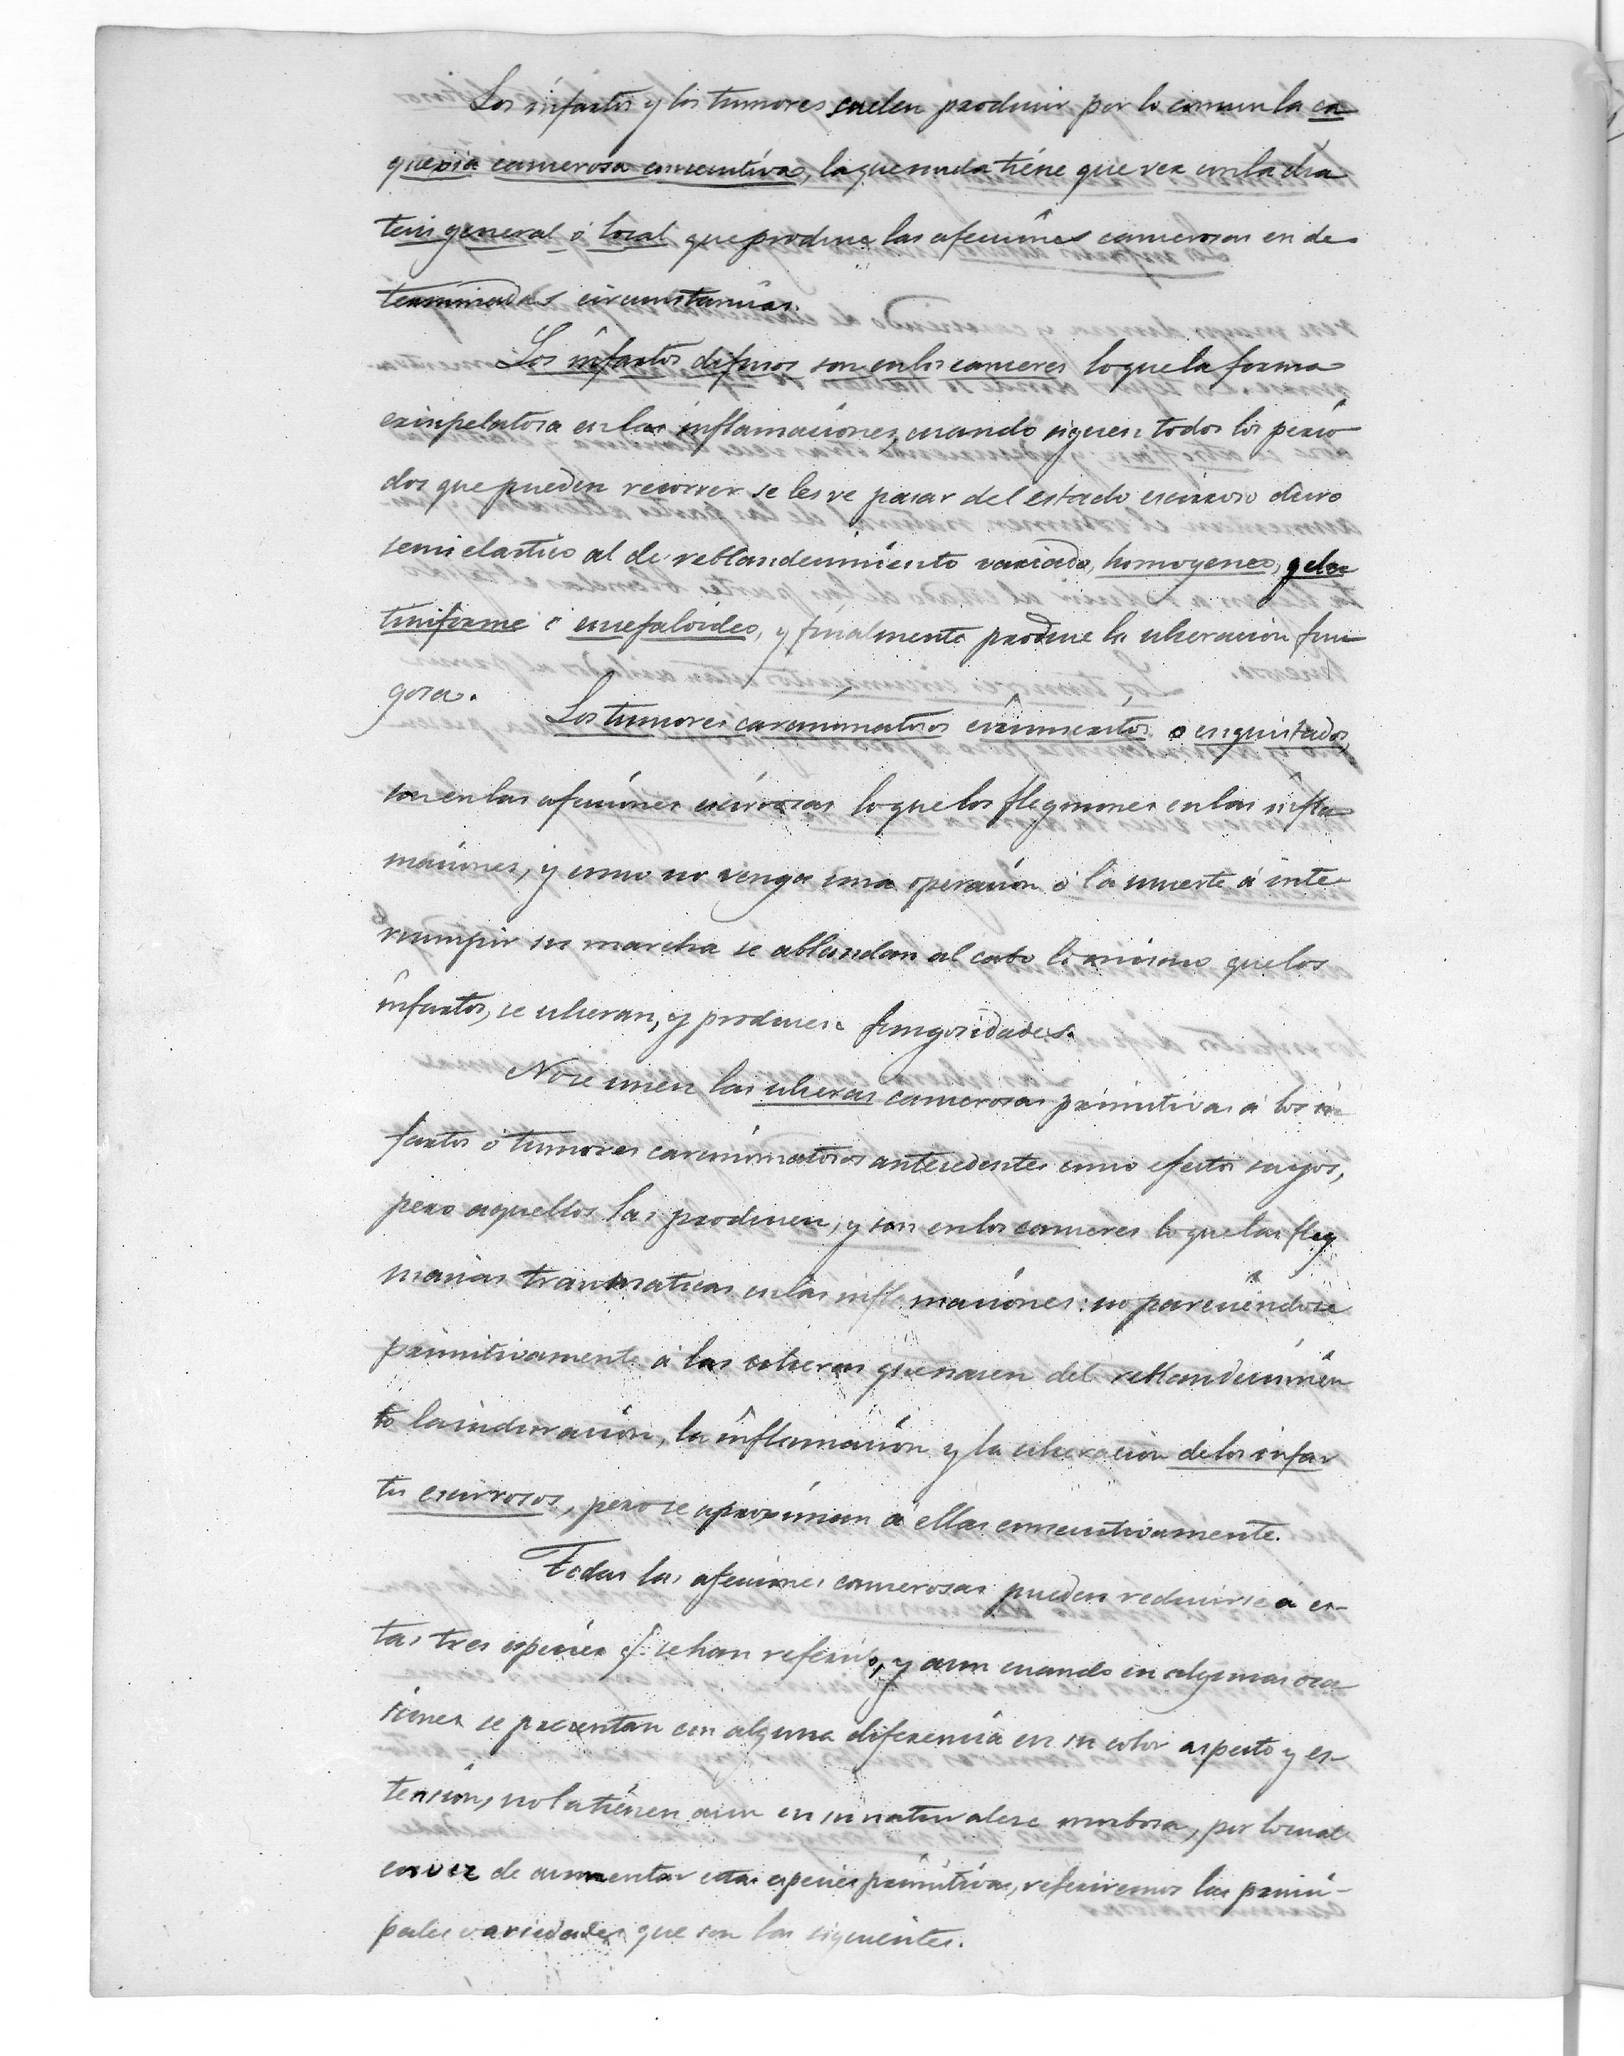 Los infartos y los tumores suelen producir por lo comun la ca
quexia cancerosa consecutiva, la que nada tiene que ver con la dia
tesis general ó local que produce las afecciones cancerosas en de
terminadas circunstancias.
Los infartos difusos son en los canceres lo que la forma
erisipelatosa en las inflamaciones, cuando siguen todos los perio
dos que pueden recorrer se les ve pasar del estado escirroso duro
semielastico al de reblandecimiento variado, homogeneo, gela
tiniforme ó encefaloideo, y finalmente produce la ulceracion fun
gosa.
Los tumores carcinomatosos circunscritos o enquistados,
son en las afecciones escirrosas lo que los flegmones en las infla
maciones, y como no venga una operacion ó la muerte á inte
rrumpir su marcha se ablandan al cabo lo mismo que los
infartos, se ulceran, y producen fungosidades.
No se unen las ulceras cancerosas primitivas á los in
fartos ó tumores carcinomatosos antecedentes como efectos suyos,
pero aquellos las producen, y son en los canceres lo que las fleg
masias traumaticas en las inflamaciones: no pareciendose
primitivamente á las ulceras que nacen del reblandecimien
to la induracion, la inflamacion y la ulceracion de los infar
tos escirrosos, pero se aproximan á ellas consecutivamente.
Todas las afecciones cancerosas pueden reducirse á es-
tas tres especies q.e se han referido, y aun cuando en algunas oca
siones se presentan con alguna diferencia en su color aspecto y es-
tension, no la tienen aun en su naturaleza morbosa, por lo cual
en vez de aumentar estas especies primitivas, referiremos las princi-
pales variedades que son las siguientes.